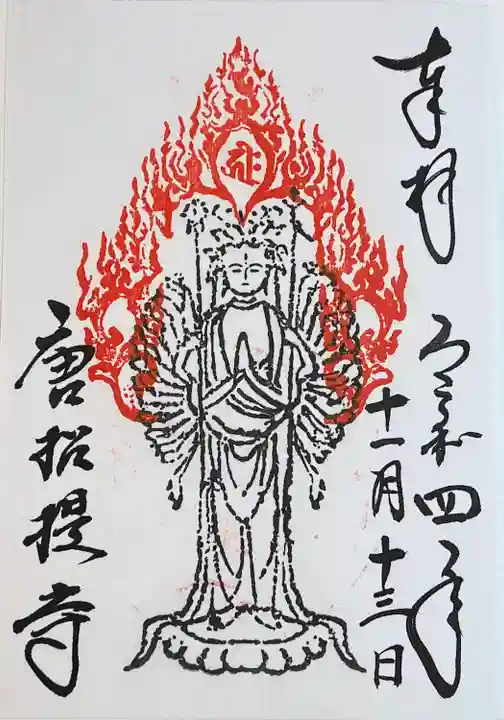 奉拝
令和四年
十一月十三日
唐招提寺